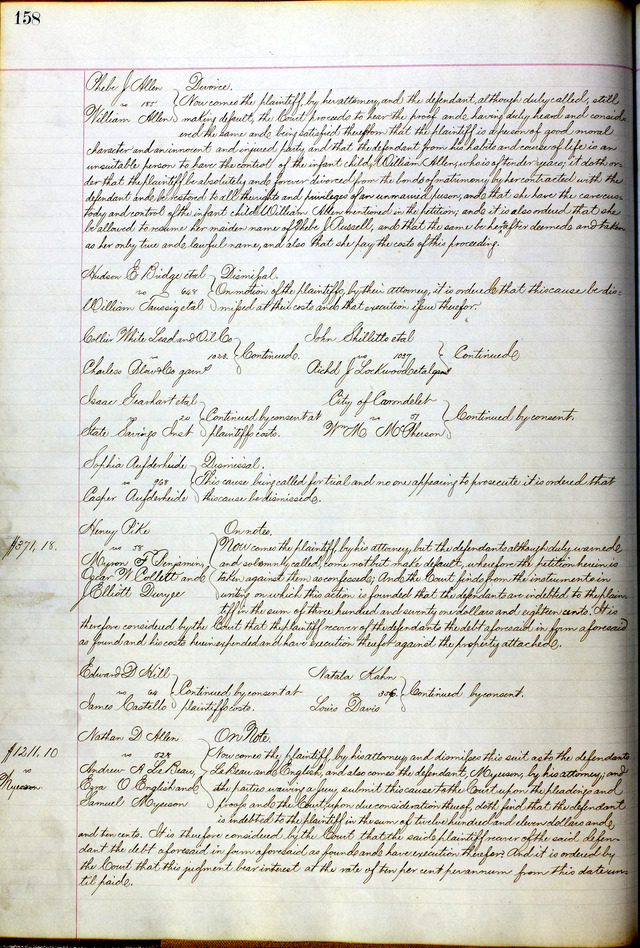 158
Phebe J Allen Divorce.
vs 185 Now comes the plaintiff, by her attorney, and the defendant, although duly called, still
William Allen making default, the Court proceeds to hear the proof and having duly heard and consid
ered the same and being satisfied therefrom that the plaintiff is a person of good moral
character and an innocent and injured party and that the defendant from his habits and course of life is an
unsuitable person to have the control of the infant child, William Allen, who is of tender years; it doth or-
der that the plaintiff be absolutely and forever divorced from the bonds of matrimony by her contracted with the
defendant and be restored to all the rights and privileges of an unmarried person, and that she have the care cus-
tody and control of the infant child William Allen mentioned in the petition; and it is also ordered that she
be allowed to resume her maiden name of Phebe J Russell, and that the same be hereafter deemed and taken
as her only true and lawful name, and also that she pay the costs of this proceeding.
Hudson E Bridge et al Dismissal.
vs 668 On motion of the plaintiffs, by their attorney, it is ordered that this cause be dis-
William Taussig et al missed at their costs and that execution issue therefor.
Collier White Lead and Oil Co John Shillitto et al
vs Continued. vs 1037 Continued
Charless Blow & Co garn Richd J Lockwood et al garn
Isaac Gearhart et al City of Carondelet
vs 20 Continued by consent at vs 57 Continued by consent.
State Savings Inst plaintiffs costs. Wm M McPherson
Sophia Aufderheide Dismissal.
vs 968 This cause being called for trial and no one appearing to prosecute it is ordered that
Casper Aufderheide this cause be dismissed.
Henry Pike On notes.
$371,18. vs 58 Now comes the plaintiff, by his attorney, but the defendants although duly warned
Myron F Benjamin, and solemnly called, come not but make default, wherefore the petition herein is
Oscar W Collett and taken against them as confessed; And the Court finds from the instruments in
J Elliott writing on which this action is founded that the defendants are indebted to the plain-
tiff in the sum of three hundred and seventy one dollars and eighteen cents. It is
therefore considered by the Court that the plaintiff recover of the defendants the debt aforesaid in form aforesaid
as found and his costs herein expended and have execution therefor against the property attached.
Edward D Hill Natala Kahn
vs 64 Continued by consent at vs Continued by consent.
James Castello plaintiff costs. Louis Davis
Nathan D Allen On Note.
$1211.10 vs 528 Now comes the plaintiff, by his attorney and dismisses this suit as to the defendants
vs Andrew A LaBeau, LaBeau and English, and also comes the defendant, Myerson, by his attorney; and
Myerson Ezra O English and the parties waiving a jury, submit this cause to the Court upon the pleadings and
Samuel Myerson proofs, and the Court, upon due consideration thereof, doth find that the defendant
is indebted to the plaintiff in the sum of twelve hundred and eleven dollars and
and ten cents. It is therefore considered by the Court that the said plaintiff recover of the said defen-
dant the debt aforesaid in form aforesaid as found and have execution therefor. And it is ordered by
the Court that this judgment bear interest at the rate of ten per cent per annum from this date un-
til paid.